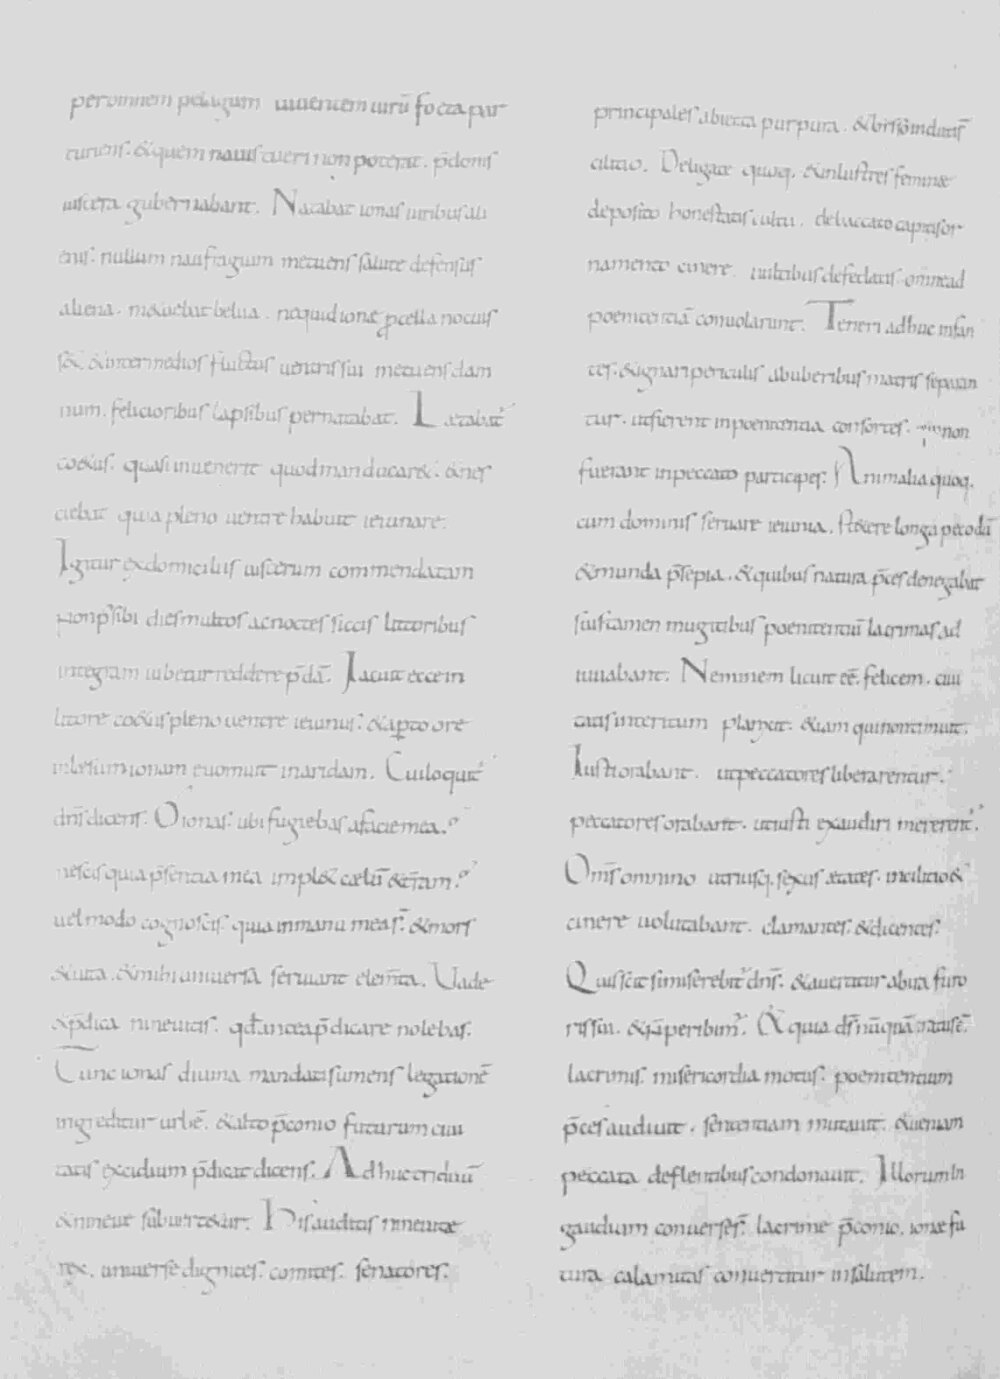 per omnem pelagum uiuentem uirū focta par
turiens. &quem nauis tueri non poterat. p̄donis
uiscera gubernabant. Natabat ionas uiribus ali
enis. nullum naufragium metuens salute defensus
aliena. m&uebat belua. nequid ionę p̄cella nocuis
s&. &inter medios fluctus uentris sui metuens dam
num. felicioribus lapsibus pernatabat. Lætabat᷒
co&us. quasi inuenerit quod manducar&. &nes
ciebat quia pleno uentre habuit ieiunare.
Igitur ex domiciliis uiscerum commendatam
p̄sibi dies multos ac noctes siccis littoribus
integram iubetur reddere p̄dā. Iacuit ecce in
litore co&us pleno uentre ieiunus. &apto ore
inlæsum ionam euomuit in aridam. Cui loquit᷒
dn̄s dicens. O ionas. ubi fugiebas a facie mea.
nescis quia p̄sentia mea impl& cælū &terram.
uel modo cognoscis. quia in manu mea s̄. &mors
&uita. &mihi uniuersa seruiunt elem̄ta. Uade
&p̄dica niniuitis. qđ antea p̄dicare nolebas.
Tunc ionas diuina mandati sumens legationē
ingreditur urbē. &alto p̄conio futurum ciui
tatis excidium p̄dicat dicens. Adhuc triduū
&nineue subuert&ur. His auditis nineuitæ
rex. uniuerse dignites. comites. senatores.
principales abiecta purpura. &bisso induti s̄
cilicio. Delicatæ quoq. &inlustres feminæ
deposito honestatis cultu. debaccato capitis or
namento cinere. uultibus defedatis. omne ad
poenitentiā conuolarunt. Teneri adhuc infan
tes. &ignari periculis ab uberibus matris separan
tur. ut fierent in poenitentia consortes. qui non
fuerant in peccato participes. Animalia quoq.
cum dominis seruare ieiunia. st&ere longa pecodū
&munda p̄sepia. &quibus natura p̄ces denegabat
suis tamen mugitibus poenitentiū lacrimas ad
iuuabant. Neminem licuit eē felicem. ciui
tatis interitum planxit. &iam qui non timuit.
Iusti orabant. ut peccatores liberarentur.
peccatores orabant. ut iusti exaudiri mererent᷒.
Om̄s omnino utriusq. sexus ætates. in cilicio &
cinere uolutabant. clamantes. &dicentes.
Quis scit si miserebit᷒ dn̄s. &auertitur ab ira furo
ris sui. &n̄ peribim᷒. & quia d̄s nūquā tratus ē
lacrimis. misericordia motus. poenitentium
p̄ces audiuit. sententiam mutauit. &ueniam
peccata deflentibus condonauit. Illorum in
gaudium conuerse s̄ lacrime p̄conio. ionæ fu
tura calamitas conuertitur in salutem.